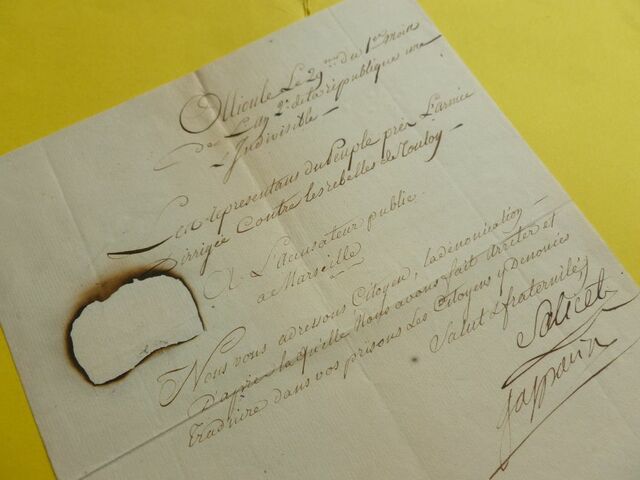 Ollioule Le 29me du 1er mois
de L'an 2e de la république une
& Indivisible —
Les Représentans du Peuple près L'armée
Dirigée Contre les rebelles de Toulon —
A L'Accusateur public
a Marseille
Nous vous adressons Citoyen, la dénonciation —
D'après laquelle Nous avons fait arrêter et
traduire dans vos prisons Les Citoyens y Denoncés
Salut & fraternité,
Saliceti
Gasparin